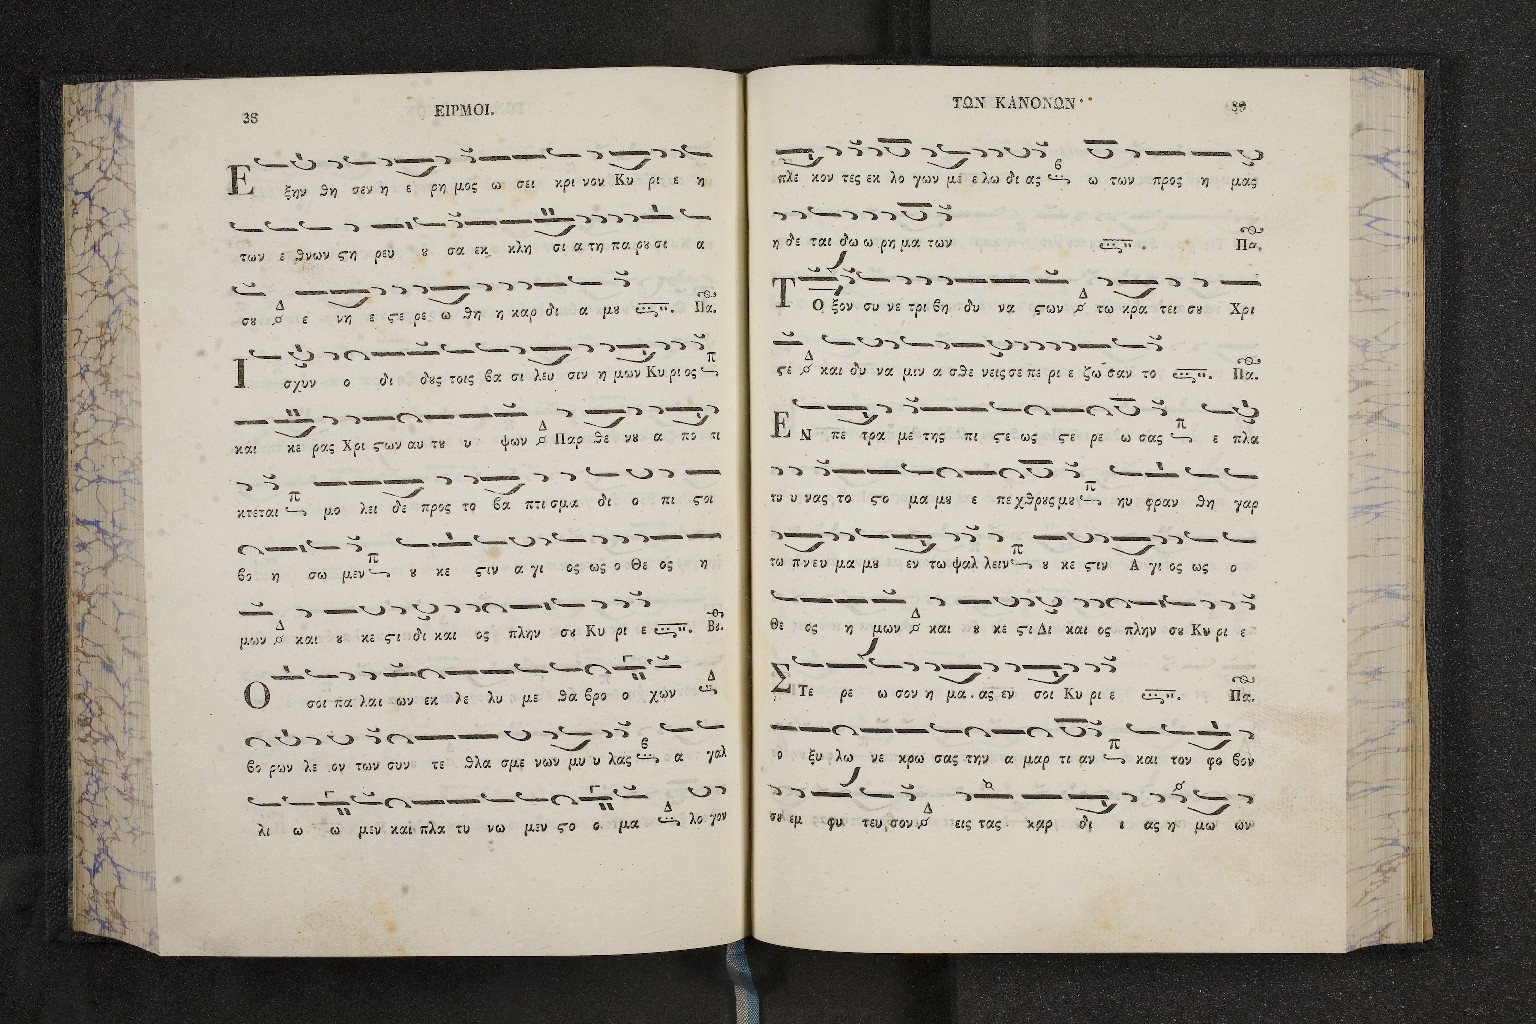 38
ΕΙΡΜΟΙ.
Ε ξην θη σεν η ε ρη μος ω σει κρι νον Κυ ρι ε η
των ε θνων ϛη ρευ ȣ σα εκ κλη σι α τη πα ρȣ σι α
σȣ Δ ε νη ε ϛε ρε ω θη η καρ δι α μȣ Πα.
Ι σχυν ο δι δȣς τοις βα σι λευ σιν η μων Κυ ρι ος π
και κε ρας Χρι ϛων αυ τȣ υ ψων Δ Παρ θε νȣ α πο τι
κτεται π μο λει δε προς το βα πτι σμα δι ο πι ϛοι
βο η σω μεν π ȣ κε ϛιν α γι ος ως ο Θε ος η
μων Δ και ȣ κε ϛι δι και ος πλην σȣ Κυ ρι ε Βȣ.
Ο σοι πα λαι ων εκ λε λυ με θα βρο ο χων Δ
βο ρων λε ον των συν τε θλα σμε νων μυ υ λας β α γαλ
λι ω ω μεν και πλα τυ νω μεν ϛο ο μα Δ λο γον
ΤΩΝ ΚΑΝΟΝΩΝ
39
πλε κον τες εκ λο γων με ε λω δι ας β ω των προς η μας
η δε ται δω ω ρη μα των Πα.
Τ Ο ξον συ νε τρι βη δυ να ϛων Δ τω κρα τει σȣ Χρι
ϛε Δ και δυ να μιν α σθε νεις σε πε ρι ε ζω σαν το Πα.
Ε Ν πε τρα με της πι ϛε ως ϛε ρε ω σας π ε πλα
τυ υ νας το ϛο μα μȣ ε πε χθρȣς μȣ π ηυ φραν θη γαρ
τω πνευ μα μȣ εν τω ψαλ λειν π ȣ κε ϛιν Α γι ος ως ο
Θε ος η μων Δ και ȣ κε ϛι Δι και ος πλην σȣ Κυ ρι ε
Σ Τε ρε ω σον η μα ας εν σοι Κυ ρι ε Πα.
ο ξυ λω νε κρω σας την α μαρ τι αν π και τον φο βον
σȣ εμ φυ τευ σον Δ εις τας καρ δι ι ας η μω ων